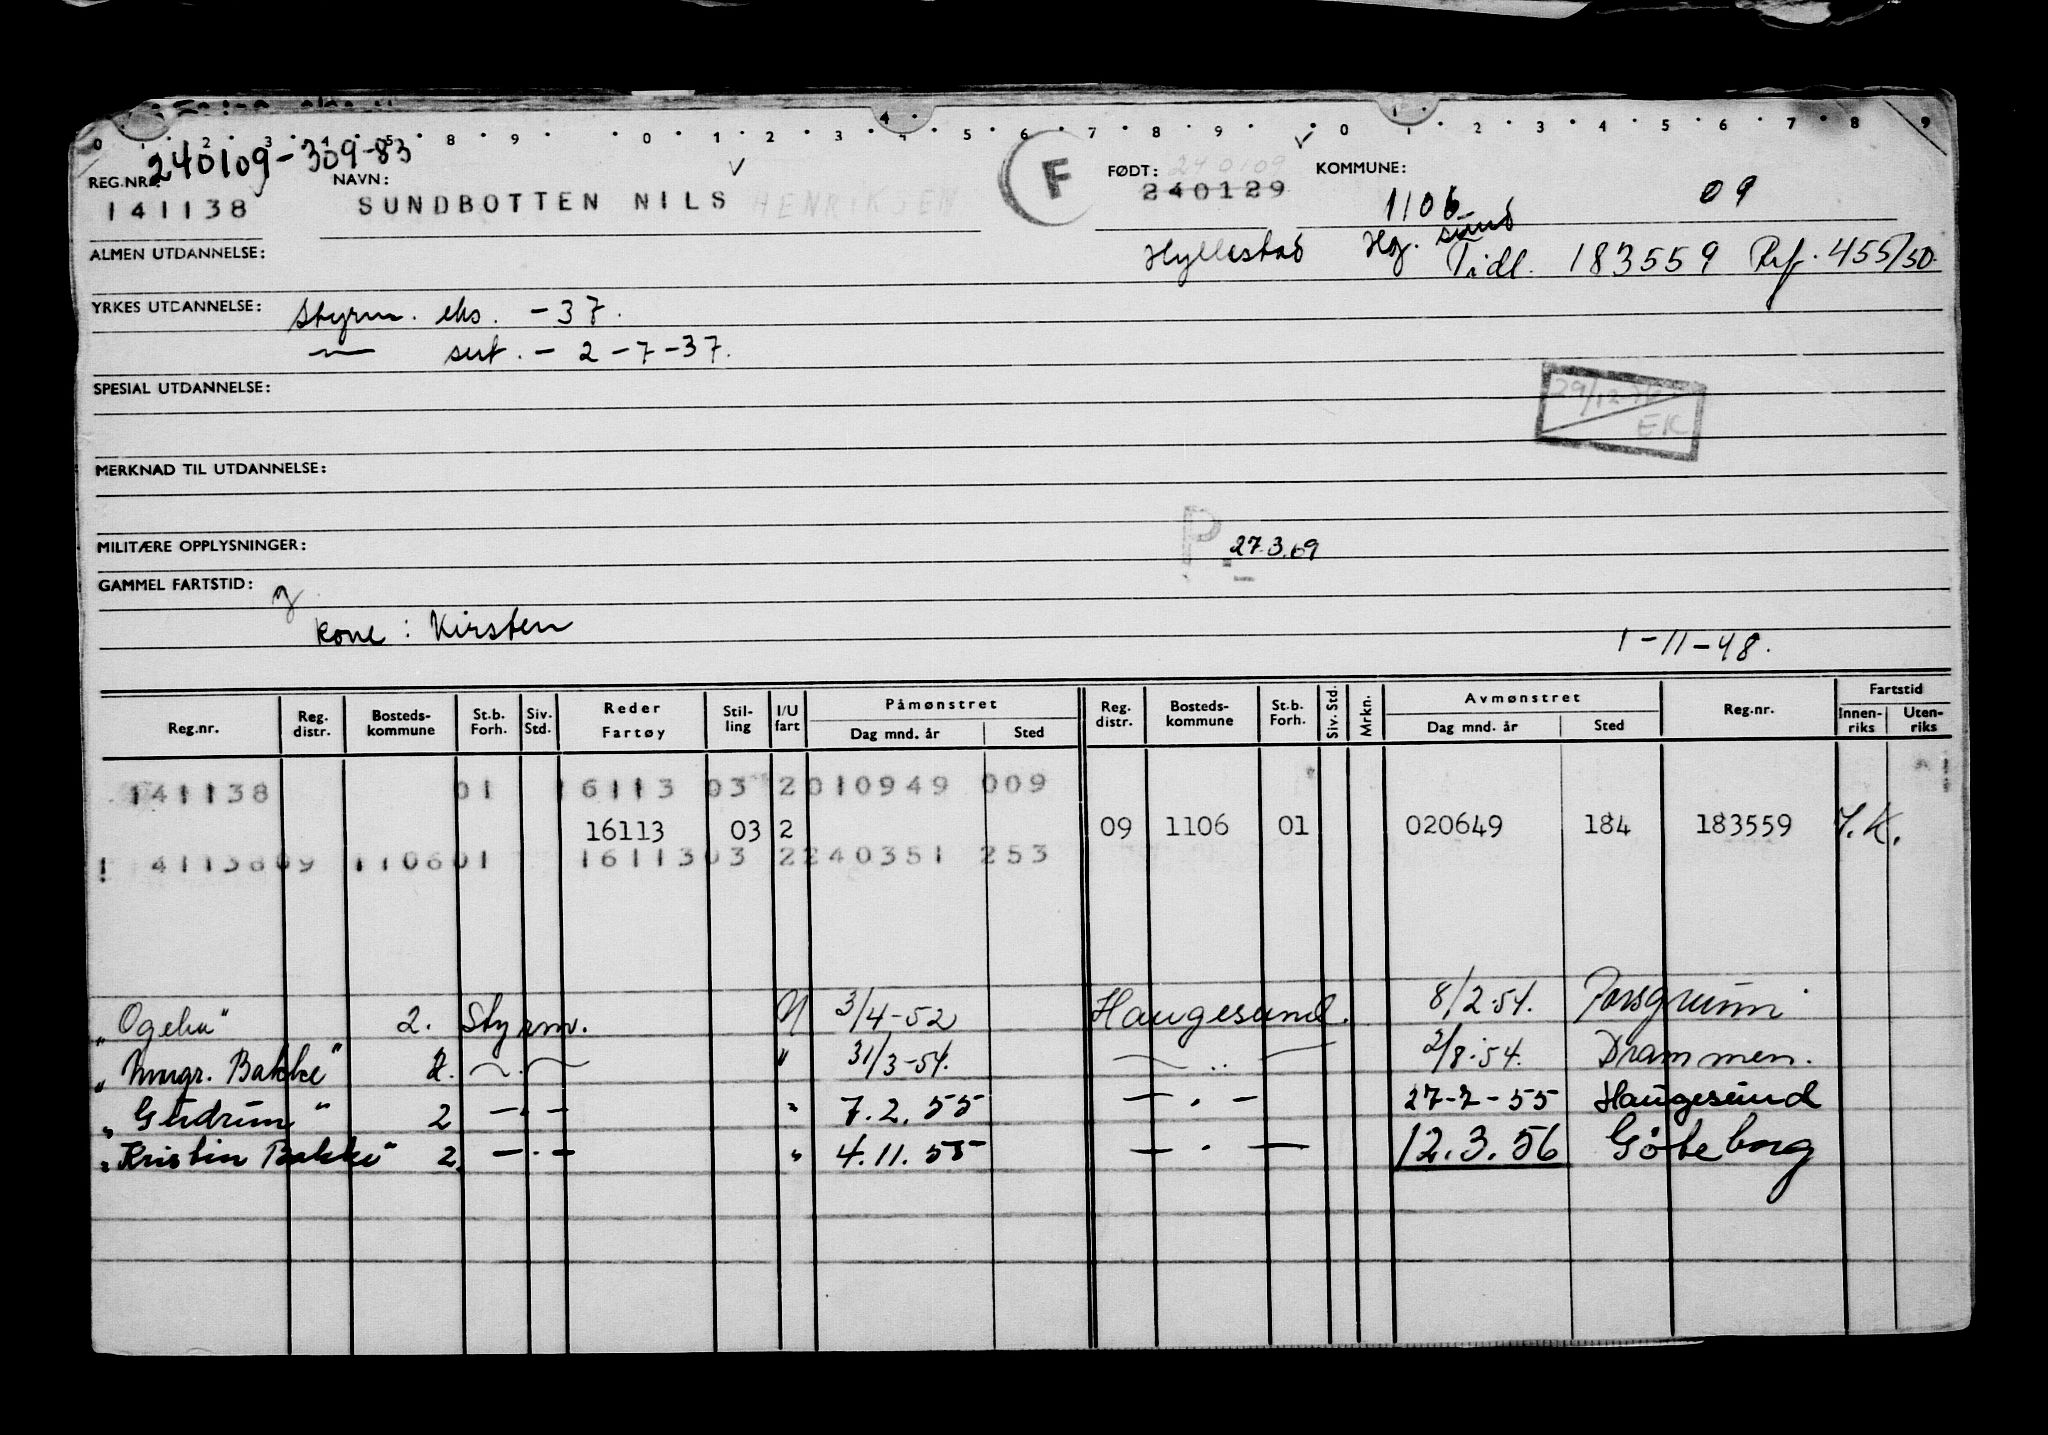 0 1 2 3 4 5 8 9 0 1 2 3 4 5 6 7 8 9 0 1 2 3 4 5 6 7 8 9
240109-309-83
REG.NR.: NAVN: FØDT: 240109 KOMMUNE:
141138 SUNDBOTTEN NILS HENRIKSEN F 240129 1106 09
ALMEN UTDANNELSE: Hyllestad Hg. sund Tidl. 183559 Ref. 455/50.
YRKES UTDANNELSE: Styrm. eks. -37.
— sert. - 2-7-37.
SPESIAL UTDANNELSE:
29/12
EK
MERKNAD TIL UTDANNELSE:
MILITÆRE OPPLYSNINGER: P. 27.3.69
GAMMEL FARTSTID:
kone: Kirsten 1-11-48.
Reg.nr. Reg. distr. Bosteds-kommune St.b. Forh. Siv. Std. Reder Fartøy Stil-ling I/U fart Påmønstret Dag mnd. år Sted Reg. distr. Bosteds-kommune St.b. Forh. Siv. Std. Mrkn. Avmønstret Dag mnd. år Sted Reg.nr. Fartstid Innen-riks Uten-riks
141138 01 16113 03 2 010949 009
16113 03 2 09 1106 01 020649 184 183559 Y.K.
141138 09 1106 01 16113 03 2 240351 253
"Ogeka" 2. Styrm. U 3/4-52 Haugesund. 8/2-54. Porsgrunn
"Margr. Bakke" 2. — " 31/3-54. — " — 2/8-54. Drammen.
"Gudrun" 2 —.— " 7.2.55 —.— 27-7-55 Haugesund
"Kristin Bakke" 2. —.— " 4.11.55 —.— 12.3.56 Göteborg